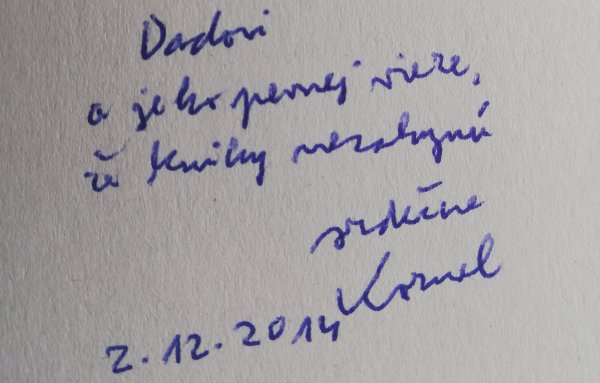 Dadovi
a jeho pevnej viere,
že knihy nezahynú
srdečne
Kornel
2.12.2014